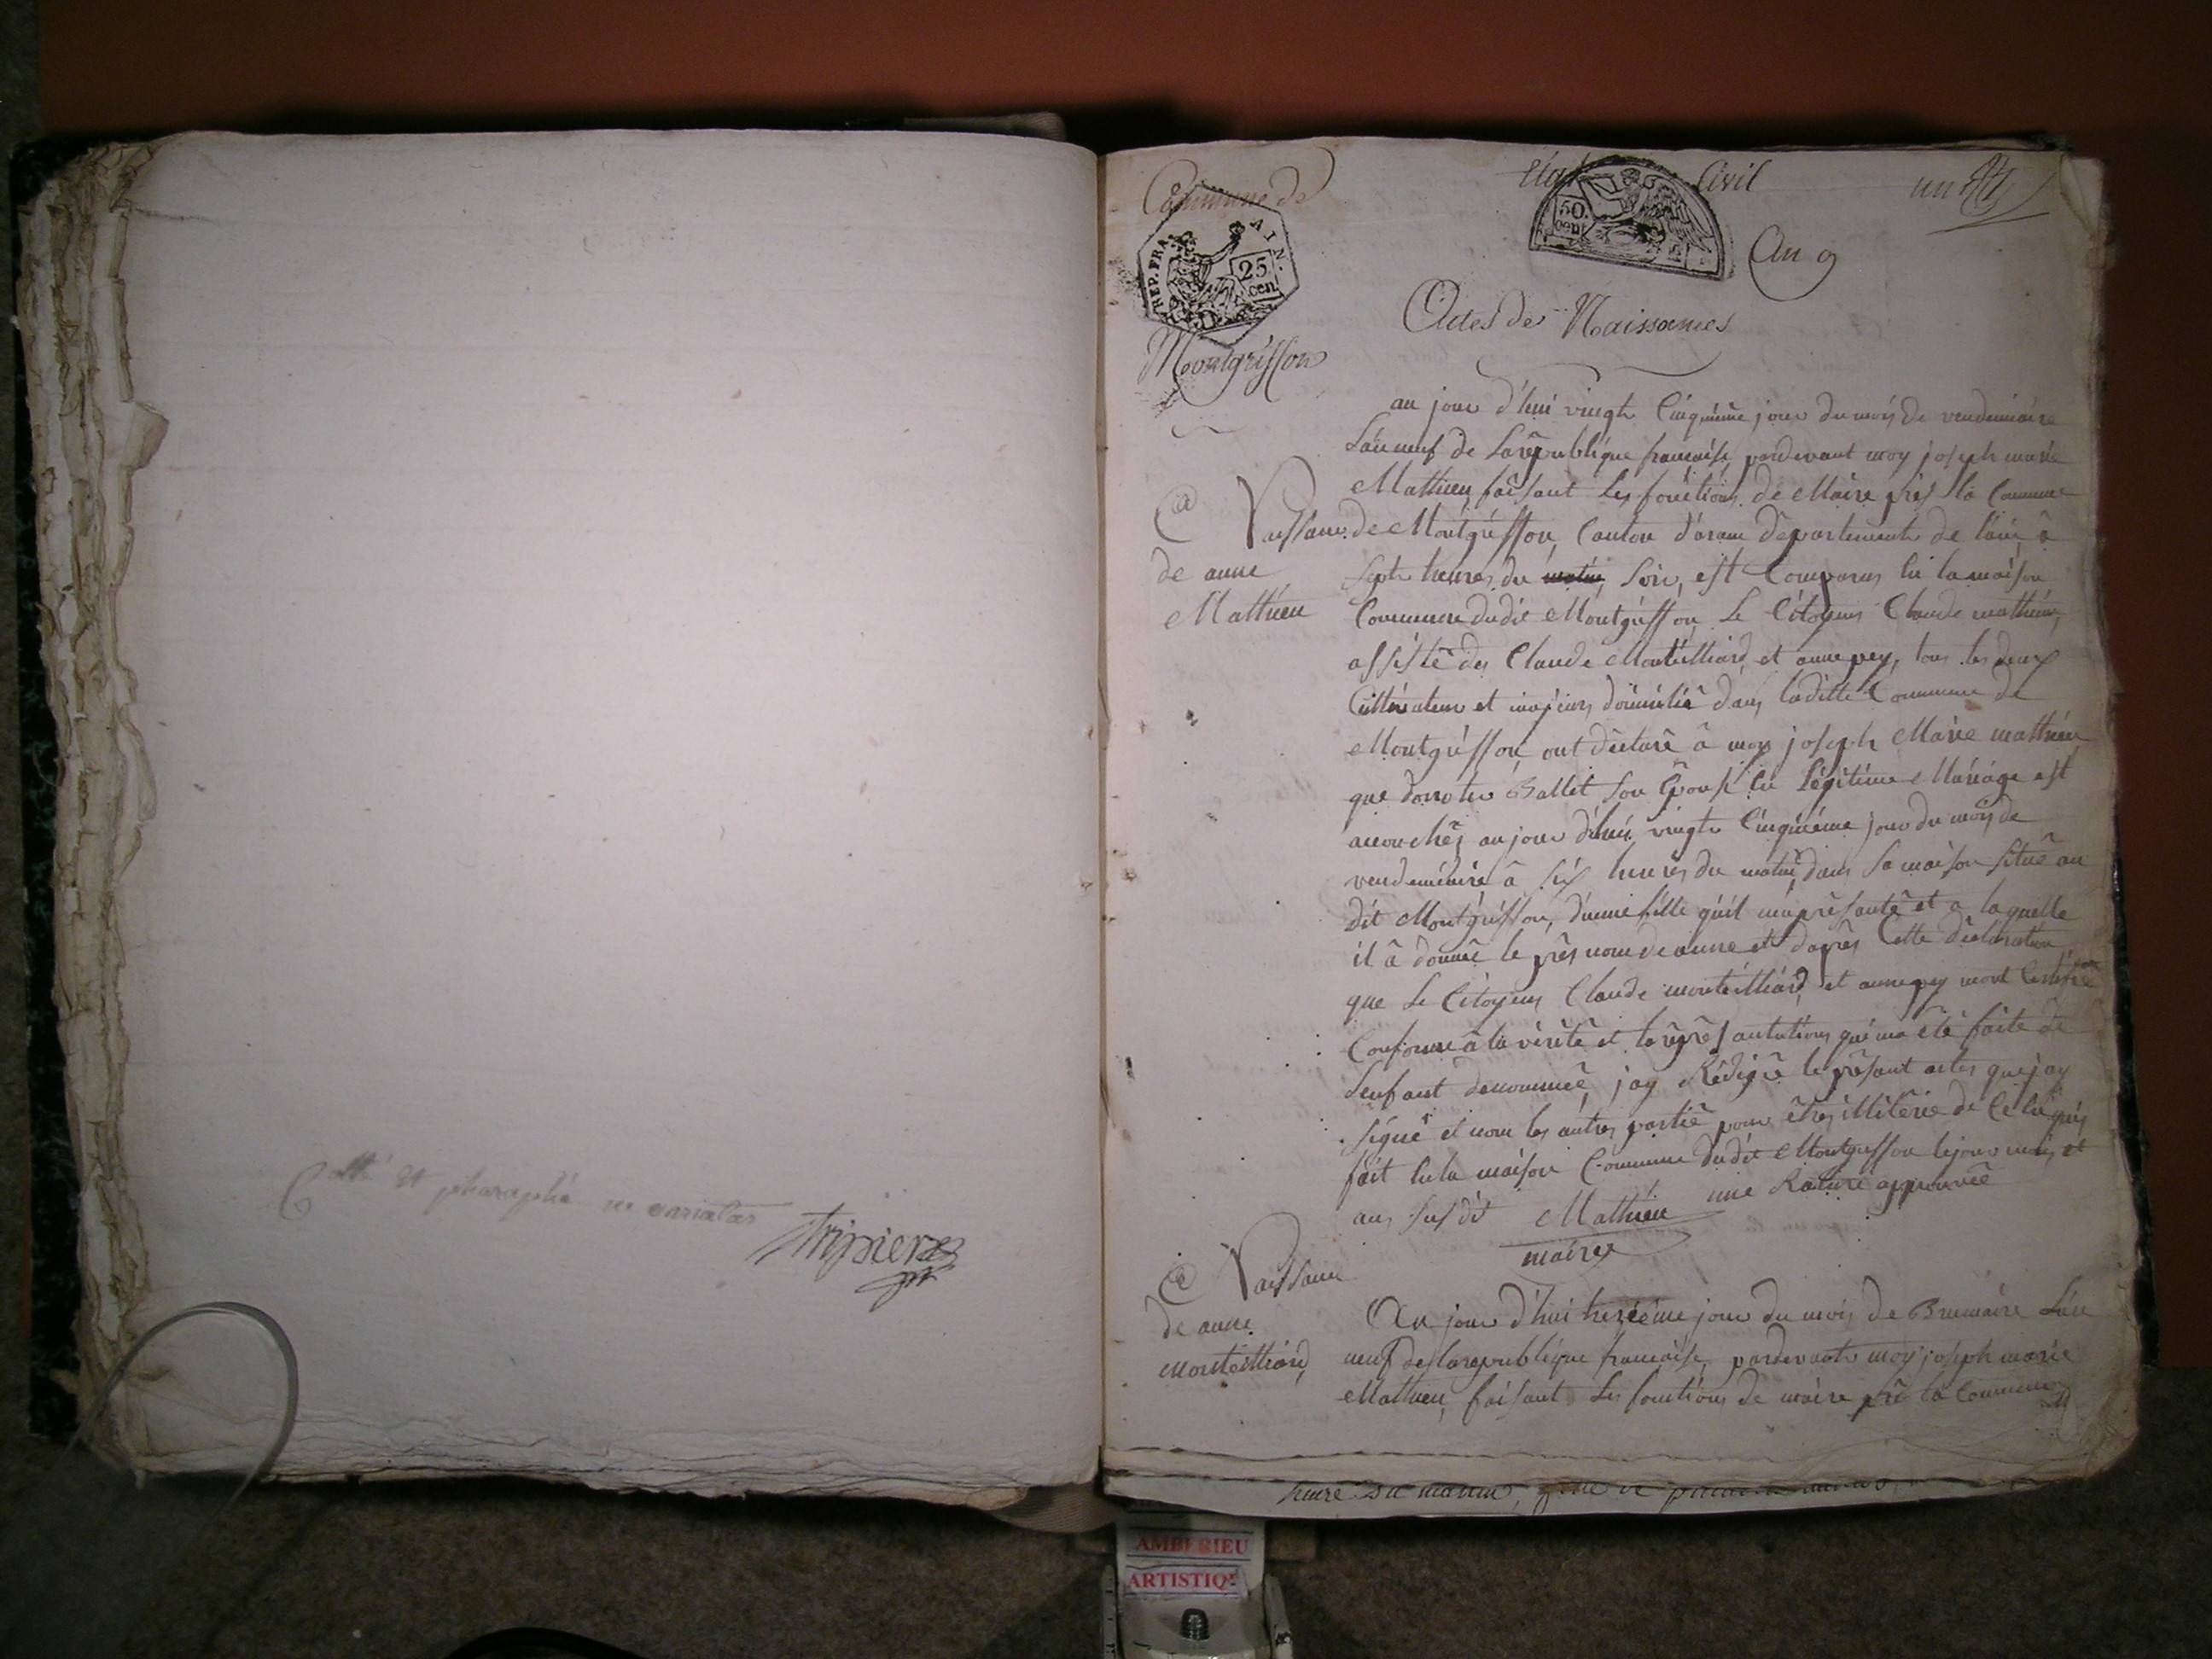 Cotté et pharaphé ne varietur
Tripier
Commune de
Montgriffon
REP. FRA
AIN.
25
cen
Etat Civil
50.
cent
un
An 9
Actes de Naissances
au jour d'hui vingt Cinquième jour du mois de vendemiaire
L'an neuf de La republique francaise pardevant moy joseph marie
Mathieu faisant Les fonctions de Maire près la Commune
Naissance
de anne
Mathieu
de Montgriffon, Canton d'aranc département de l'ain, à
sept heures du matin, soir, est Comparus en la maison
Commune dudit Montgriffon Le Citoyens Claude mathieu,
assisté de Claude Monteilliard et anne pey, tous les deux
Cultivateur et majeurs domicilié dans laditte Commune de
Montgriffon, ont déclaré à moy joseph Marie mathieu
que Ballet son Épouse en légitime Mariage est
accouchés au jour d'hui vingt Cinquième jour du mois de
vendemiaire à six heures du matin, dans sa maison situé au
dit Montgriffon, d'unne fille qu'il m'a présanté et a laquelle
il à donnée le prés nom de anne et daprés Cette déclaration
que Le Citoyens Claude monteilliard et anne pey mont Certifié
Conforme à la vérité et la réprésantations qui ma été faite de
L'enfant denommée, jay Rédigée le présant actes que jay
signé et non les autres partie pour êtres illitérée de Ce
fait en la maison Commune dudit Montgriffon le jour mois et
ans susdit Mathieu une Rature approuvée
maire
Naissance
de anne
monteilliard
Au jour d'hui treizième jour du mois de Brumaire L'an
neuf de la republique francaise, pardevant moy joseph marie
Mathieu, faisant Les fonctions de maire prè la Commune
heure du matin,
AMBERIEU
ARTISTIQ